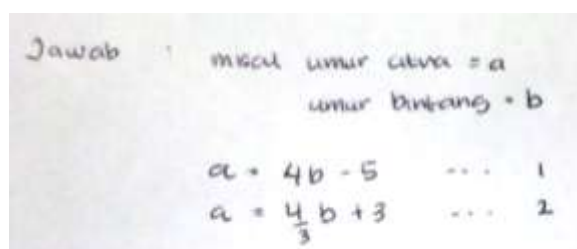 Jawab : misal umur citra = a
umur bintang = b
a = 4b - 5 .... 1
a = 4/3 b + 3 .... 2